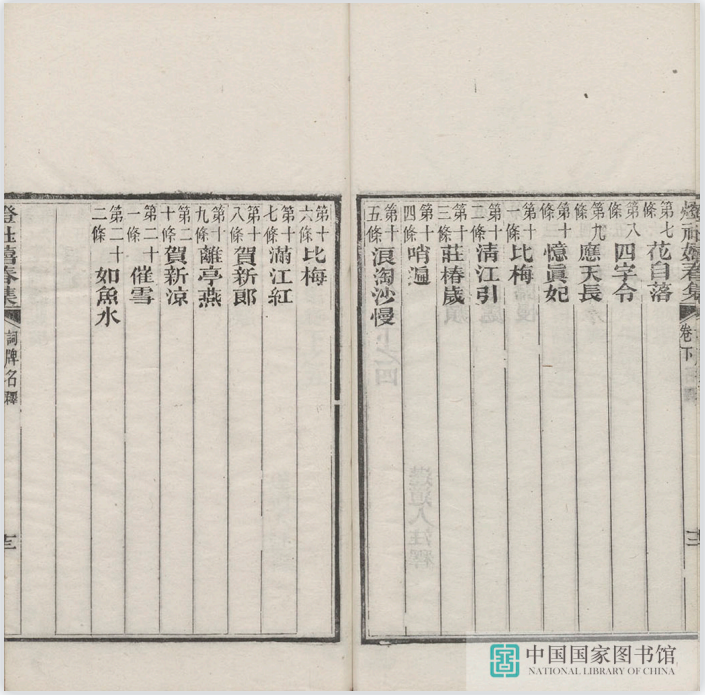 燈社嬉春集 卷下 三
第七條 花自落
第八條 四字令
第九條 應天長
第十條 憶眞妃
第十一條 比梅
第十二條 淸江引
第十三條 莊椿歲
第十四條 哨遍
第十五條 浪淘沙慢
第十六條 比梅
第十七條 滿江紅
第十八條 賀新郎
第十九條 離亭燕
第二十條 賀新涼
第二十一條 催雪
第二十二條 如魚水
燈社嬉春集 詞牌名釋 三
中国国家图书馆
NATIONAL LIBRARY OF CHINA